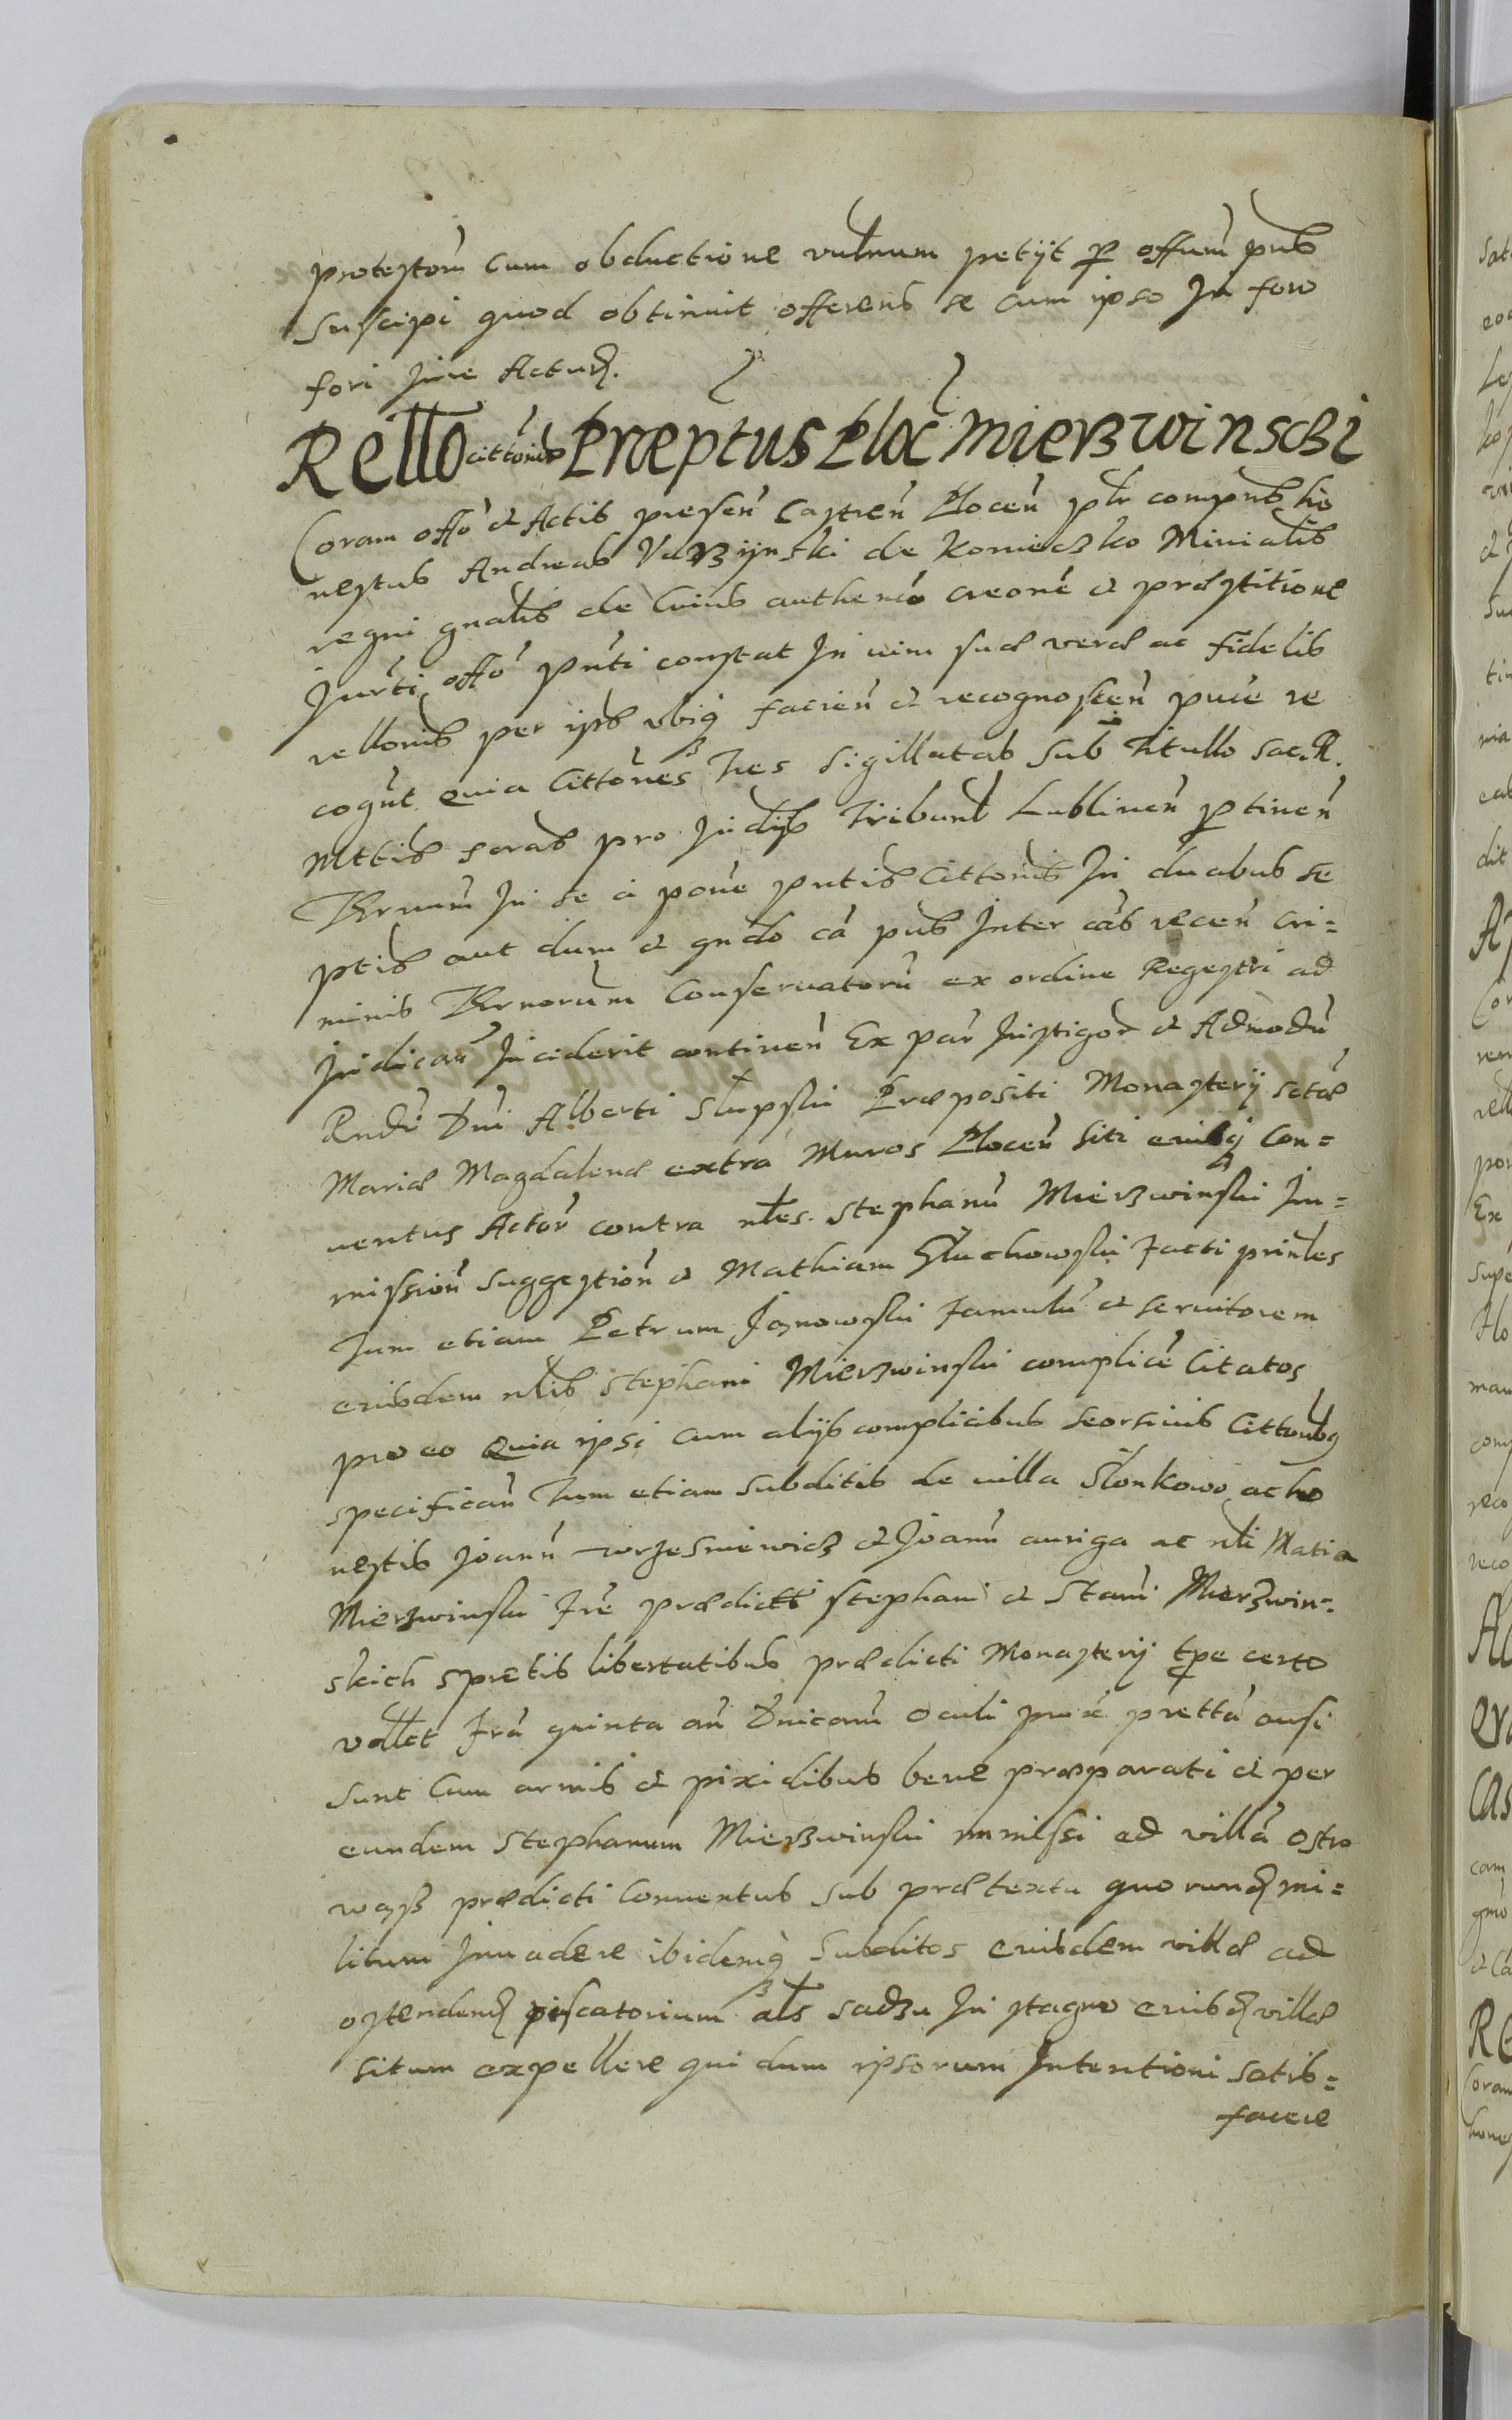 protestom̃ cum obductione vulnum petijt ꝑ offum̃ pns
suscipi quod obtinuit offerens se cum ipso In foro
fori jure Actur̃.
Rello cittõnis Præptus Ploc̃ Mierzwinscki
Coram offõ et Actis preseñ Castreñ Ploceñ plr compns ho
nestus Andreas de Konieczko Minialis
regni gnalis de Cuius authenõ creonẽ et præstitione
Jurti offõ pñti constat In vim suæ veræ ac fidelis
rellonis per ips vbiq facieñ et recognosceñ pure re
cognt Quia Cittones tres sigillatas sub Titullo Sac. R.
Mttis seras pro Judijs Tribunl Lublineñ ꝑtineñ
Trnum̃ In se a põne pntis Cittonis In duabus se
ptis aut dum et qndo cã pns Inter cãs receñ cri=
minis Trnorum Conseruatorũ ex ordine Regestri ad
Judicañ Inciderit contineñ Ex par̃ Instigor̃ et Admodũ
Rndi Dni Alberti Słupski Præpositi Monasterij sctæ
Mariæ Magdalenæ extra Muros Ploceñ siti eiusq Con=
uentus Actor̃ contra nles. Stephanũ Mierzwinski Im=
mission̄ suggestion̄ et Mathiam Głuchowski facti prinles
Tum etiam Petrum Jasnowski famulũ et seruitorem
eiusdem nlis Stephani Mierzwinski complicẽ Citatos
pro eo Quia ipsi cum alijs complicibus seorsiuis Cittonbq
specifican̄ Tum etiam subditis de villa Słonkowo ac ho
nestis Joann̄ Wrzesniewicz et Joann̄ auriga ac nli Matia
Mierzwinski Fre prædicti Stephani et Stani Mierzwin=
skich spretis libertatibus prædicti Monasterij tpe certo
vdlt Frã quinta an̄ Dnicam̄ Oculi prox̃ prettã ausi
sunt Cum armis et pixidibus bene præparati et per
eundem Stephanum Mierzwinski immissi ad villã Ostro
wąsz prædicti Conuentus sub prætextu quorund mi=
litum Inuadere ibidemq subditos eiusdem villæ ad
ostendend piscatorium als sadzu In stagno eiusd villæ
situm expellere qui dum ipsorum Intentioni satis=
facere